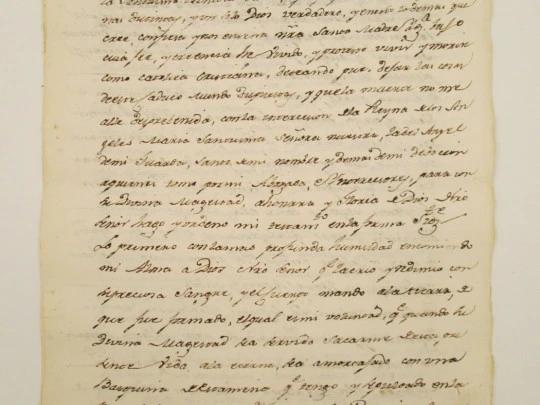 nas distintas, y un solo Dios verdadero, y en todo lo demas que
cree, confiesa y nos enseña nra Santa Madre Ygª, bajo
cuia fee, y creencia he vivido, y protesto vivir y morir
como catolica christiana, deseando pues dejar las cosas
de este caduco Mundo dispuestas, y que la muerte no me
alle desprevenida, con la interzecion de la Reyna de los An
geles Maria Santissima Señora nuestra, la del Angel
de mi Guarda, Santo de mi nombre y demas de mi devocion
aquienes tomo por mi Abogada, Yntercesores, para con
su Divina Magestad, a honrra y Gloria de Dios Nro
Señor hago y ordeno mi testamto en la forma sigte
Lo primero con la mas profunda humildad encomiendo
mi Alma a Dios Nro Señor qe la crio y redimio con
su preciosa Sangre, y el cuerpo mando a la tierra, de
que fue formado, el qual es mi voluntad, qe quando su
Divina Magestad sea servido sacarme de esta pre
sente Vida, a la eterna, sea amortajado con una
Basquiña de Estameña qe tengo y sepultado en la